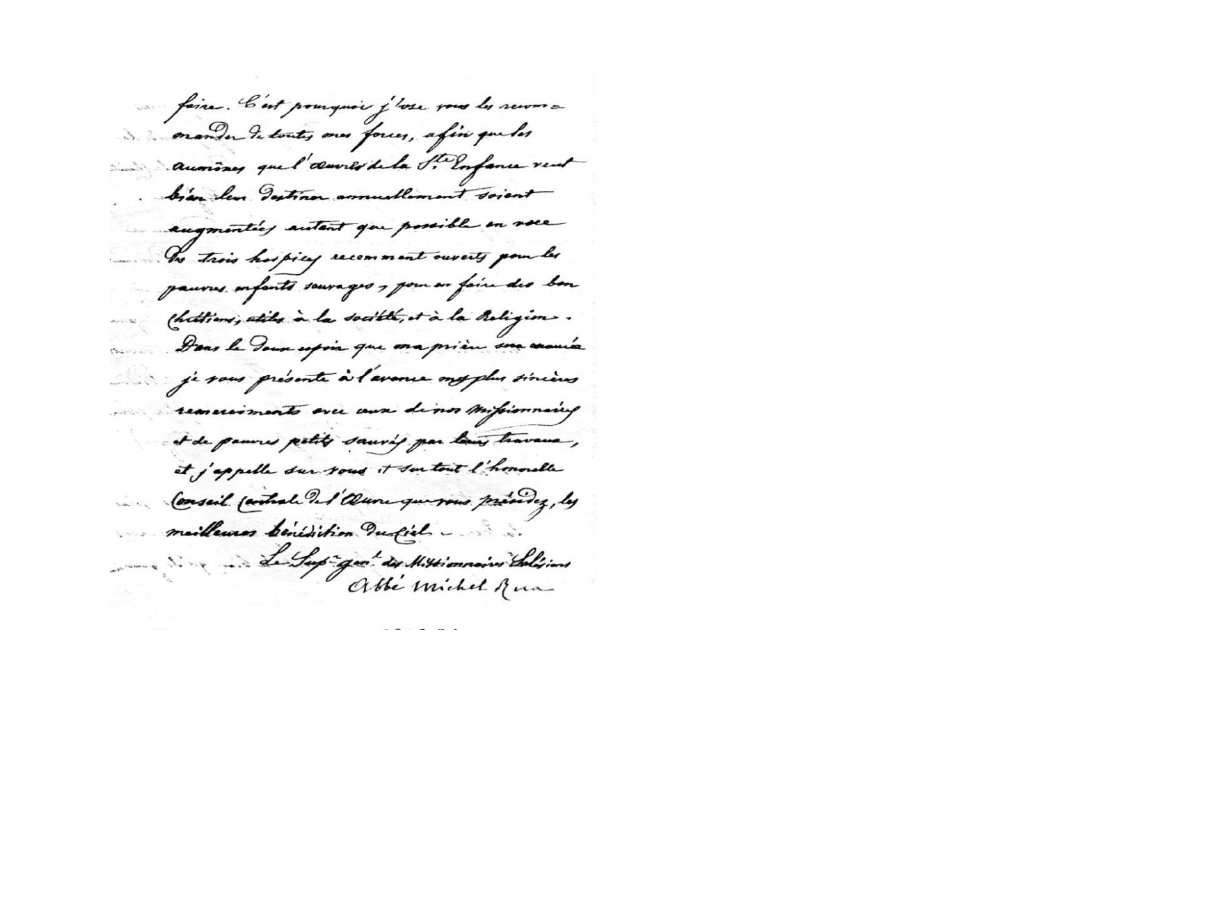 faire. C'est pourquoi j'ose vous les recom=
mander de toutes mes forces, afin que les
aumônes que l'Œuvre de la Ste Enfance veut
bien leur destiner annuellement soient
augmentées autant que possible en vue
des trois hospices recemment ouverts pour les
pauvres enfants sauvages, pour en faire des bon
Chrétiens, utiles à la société, et à la Religion.
Dans le doux espoir que ma prière sera exaucée
je vous présente à l'avance mes plus sincères
remerciments avec ceux de nos Missionnaires
et de pauvres petits sauvés par leurs travaux,
et j'appelle sur vous et sur tout l'honorable
Conseil Centrale de l'Œuvre que vous présidez, les
meilleures bénédiction du Ciel.
Le Supr genl des Missionnaires Salésiens
Abbé Michel Rua